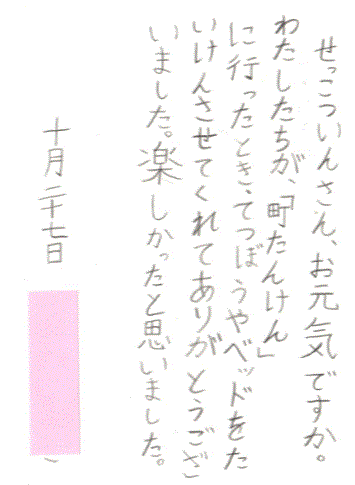 せっこついんさん、お元気ですか。
わたしたちが、「町たんけん」
に行ったとき、てつぼうやベッドをた
いけんさせてくれてありがとうござ
いました。楽しかったと思いました。
十月二十七日